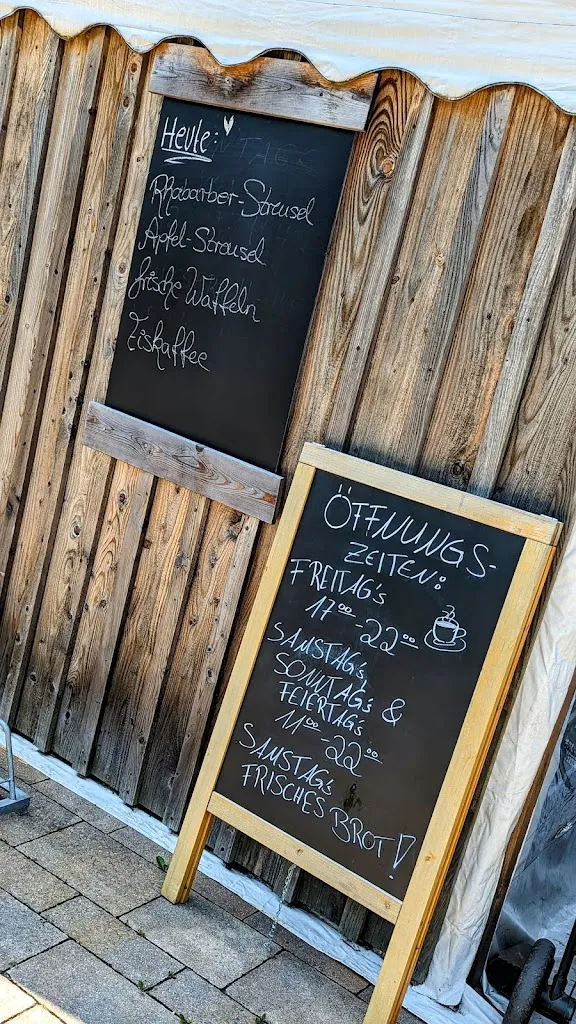 Heute:
Rhabarber-Streusel
Apfel-Streusel
frische Waffeln
Eiskaffee
ÖFFNUNGS-
ZEITEN:
FREITAG's
17⁰⁰-22⁰⁰
SAMSTAG's,
SONNTAG's &
FEIERTAG's
11⁰⁰-22⁰⁰
SAMSTAG's
FRISCHES BROT!